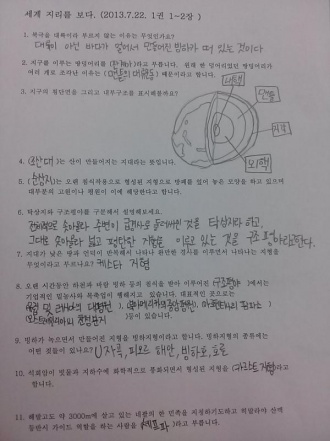 세계 지리를 보다. (2013.7.22. 1권 1~2장 )
1. 북극을 대륙이라 부르지 않는 이유는 무엇인가요?
대륙이 아닌 바다가 얼어서 만들어진 빙하가 떠 있는 것이다
2. 지구를 이루는 땅덩어리를 (판게아)라고 부릅니다. 원래 한 덩어리였던 땅덩어리가
여러 개로 조각난 이유는 ( 때문이라고 합니다.
3. 지구의 절단면을 그리고 내부구조를 표시해볼까요?
내핵
맨틀
지각
외핵
4. (조산대)는 산이 만들어지는 지대라는 뜻입니다.
5. (순상지)는 오랜 침식작용으로 형성된 지형으로 방패를 엎어 놓은 모양을 하고 있으며
대부분의 고원이나 평원이 이에 해당한다고 합니다.
6. 탁상지와 구조평야를 구분해서 설명해보세요.
전체적으로 솟아올라 주변이 급경사로 둘러싸인 것을 탁상지라 하고,
그대로 솟아올라 넓고 평탄한 지형을 이루고 있는 것을 구조평야라한다.
7. 지대가 낮은 평야 언덕이 반복해서 나타나 완만한 경사를 이루면서 나타나는 지형을
무엇이라고 부르나요? 케스타 지형
8. 오랜 시간동안 하천과 바람 빙하 등의 침식을 받아 이루어진 (구조평야)에서는
기업적인 밀농사와 목축업이 행해지고 있습니다. 대표적인 곳으로는
등이 있습니다.
9. 빙하가 녹으면서 만들어진 지형을 빙하지형이라고 합니다. 빙하지형의 종류에는
어떤 것들이 있나요? U자곡, 피오르 해안, 빙하호, 호른
10. 석회암이 빗물과 지하수에 화학적으로 풍화되면서 형성된 지형을 (카르스트 지형)라고
합니다.
11. 해발고도 약 3000m에 살고 있는 대륙의 한 민족을 지칭하기도하고 히말라야 산맥
등반시 가이드 역할을 하는 사람을 (셰르파)라고 부릅니다.